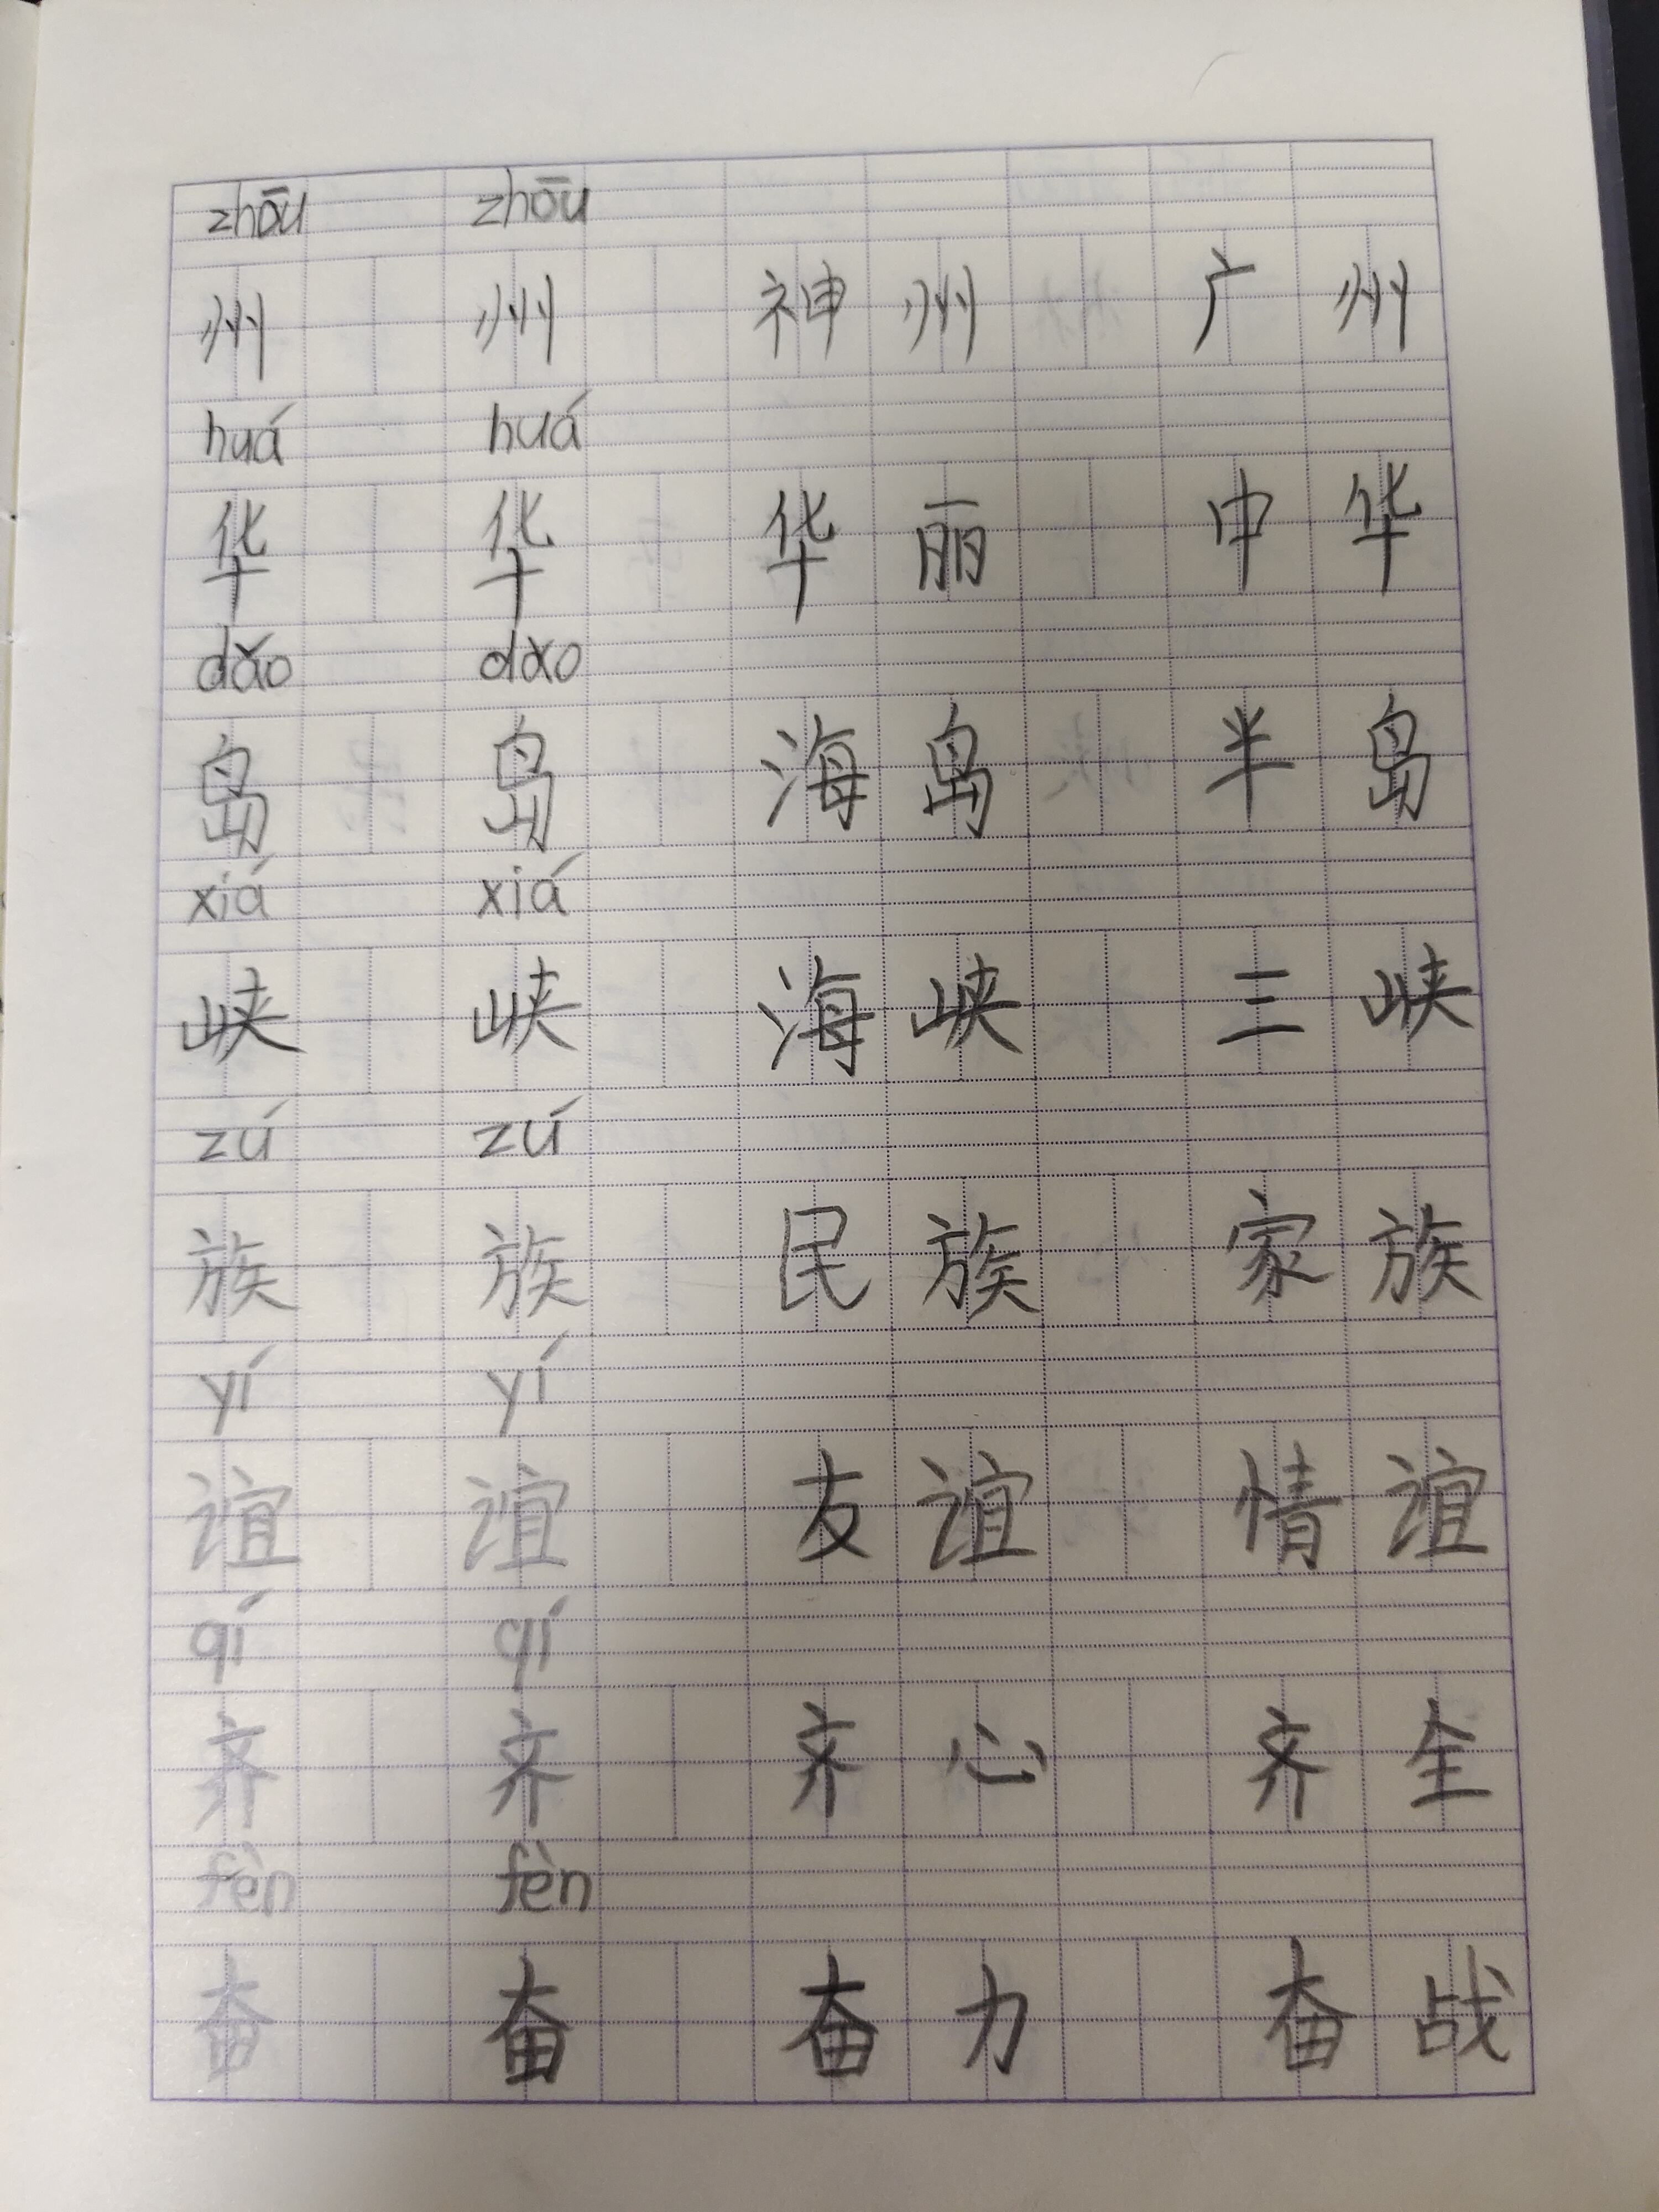 zhōu zhōu
州 州 神 州 广 州
huá huá
华 华 华 丽 中 华
dǎo dǎo
岛 岛 海 岛 半 岛
xiá xiá
峡 峡 海 峡 三 峡
zú zú
族 族 民 族 家 族
yí yí
谊 谊 友 谊 情 谊
qí qí
齐 齐 齐 心 齐 全
fèn fèn
奋 奋 奋 力 奋 战